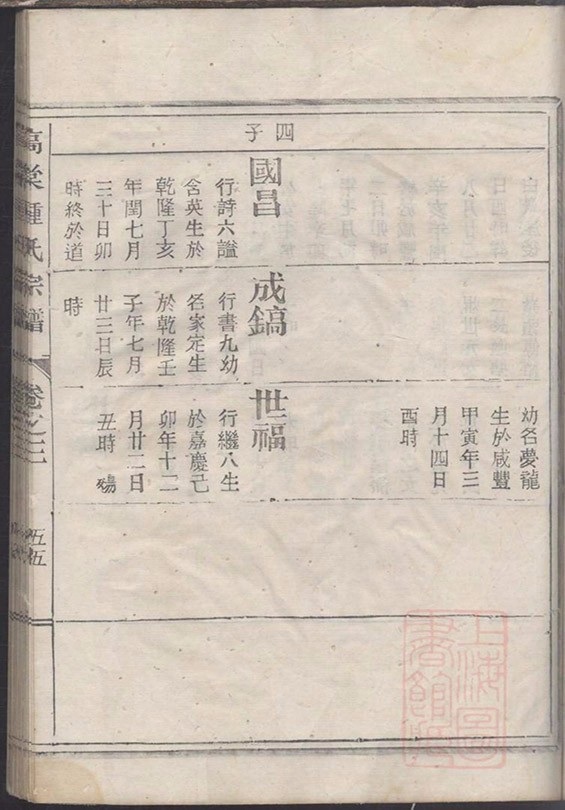 四子
國昌
行詩六謚
含英生於
乾隆丁亥
年閏七月
三十日卯
時終於道
成鎬
行書九幼
名家定生
於乾隆壬
子年七月
廿三日辰
時
幼名夢龍
生於咸豐
甲寅年三
月十四日
酉時
世福
行繼八生
於嘉慶己
卯年十二
月廿二日
丑時 殤
棠鍾氏宗譜
卷之
五五
上海圖
書館藏